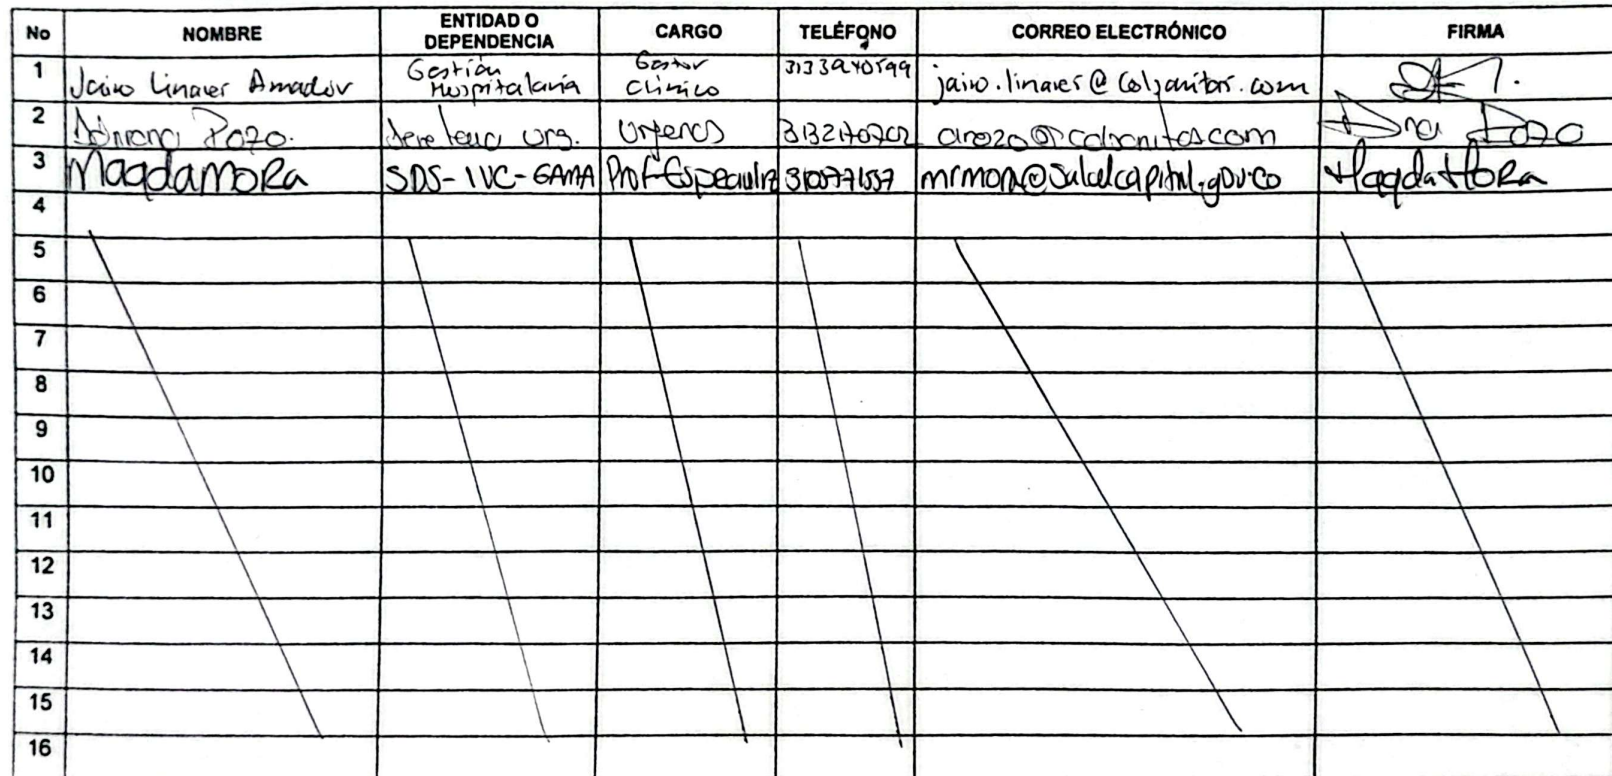 No NOMBRE ENTIDAD O DEPENDENCIA CARGO TELÉFONO CORREO ELECTRÓNICO FIRMA
1 Jairo Linares Amador Gestión Hospitalaria Gestor Clínico 3133940599 jairo.linares@colsanitas.com
2 Adriana Pozo. urg. Urgencias 3132170702 Dra Pozo
3 Magda Mora SDS-IVC-GAMA Prof Especializ 3105771557 mrmora@saludcapital.gov.co Magda Mora
4
5
6
7
8
9
10
11
12
13
14
15
16